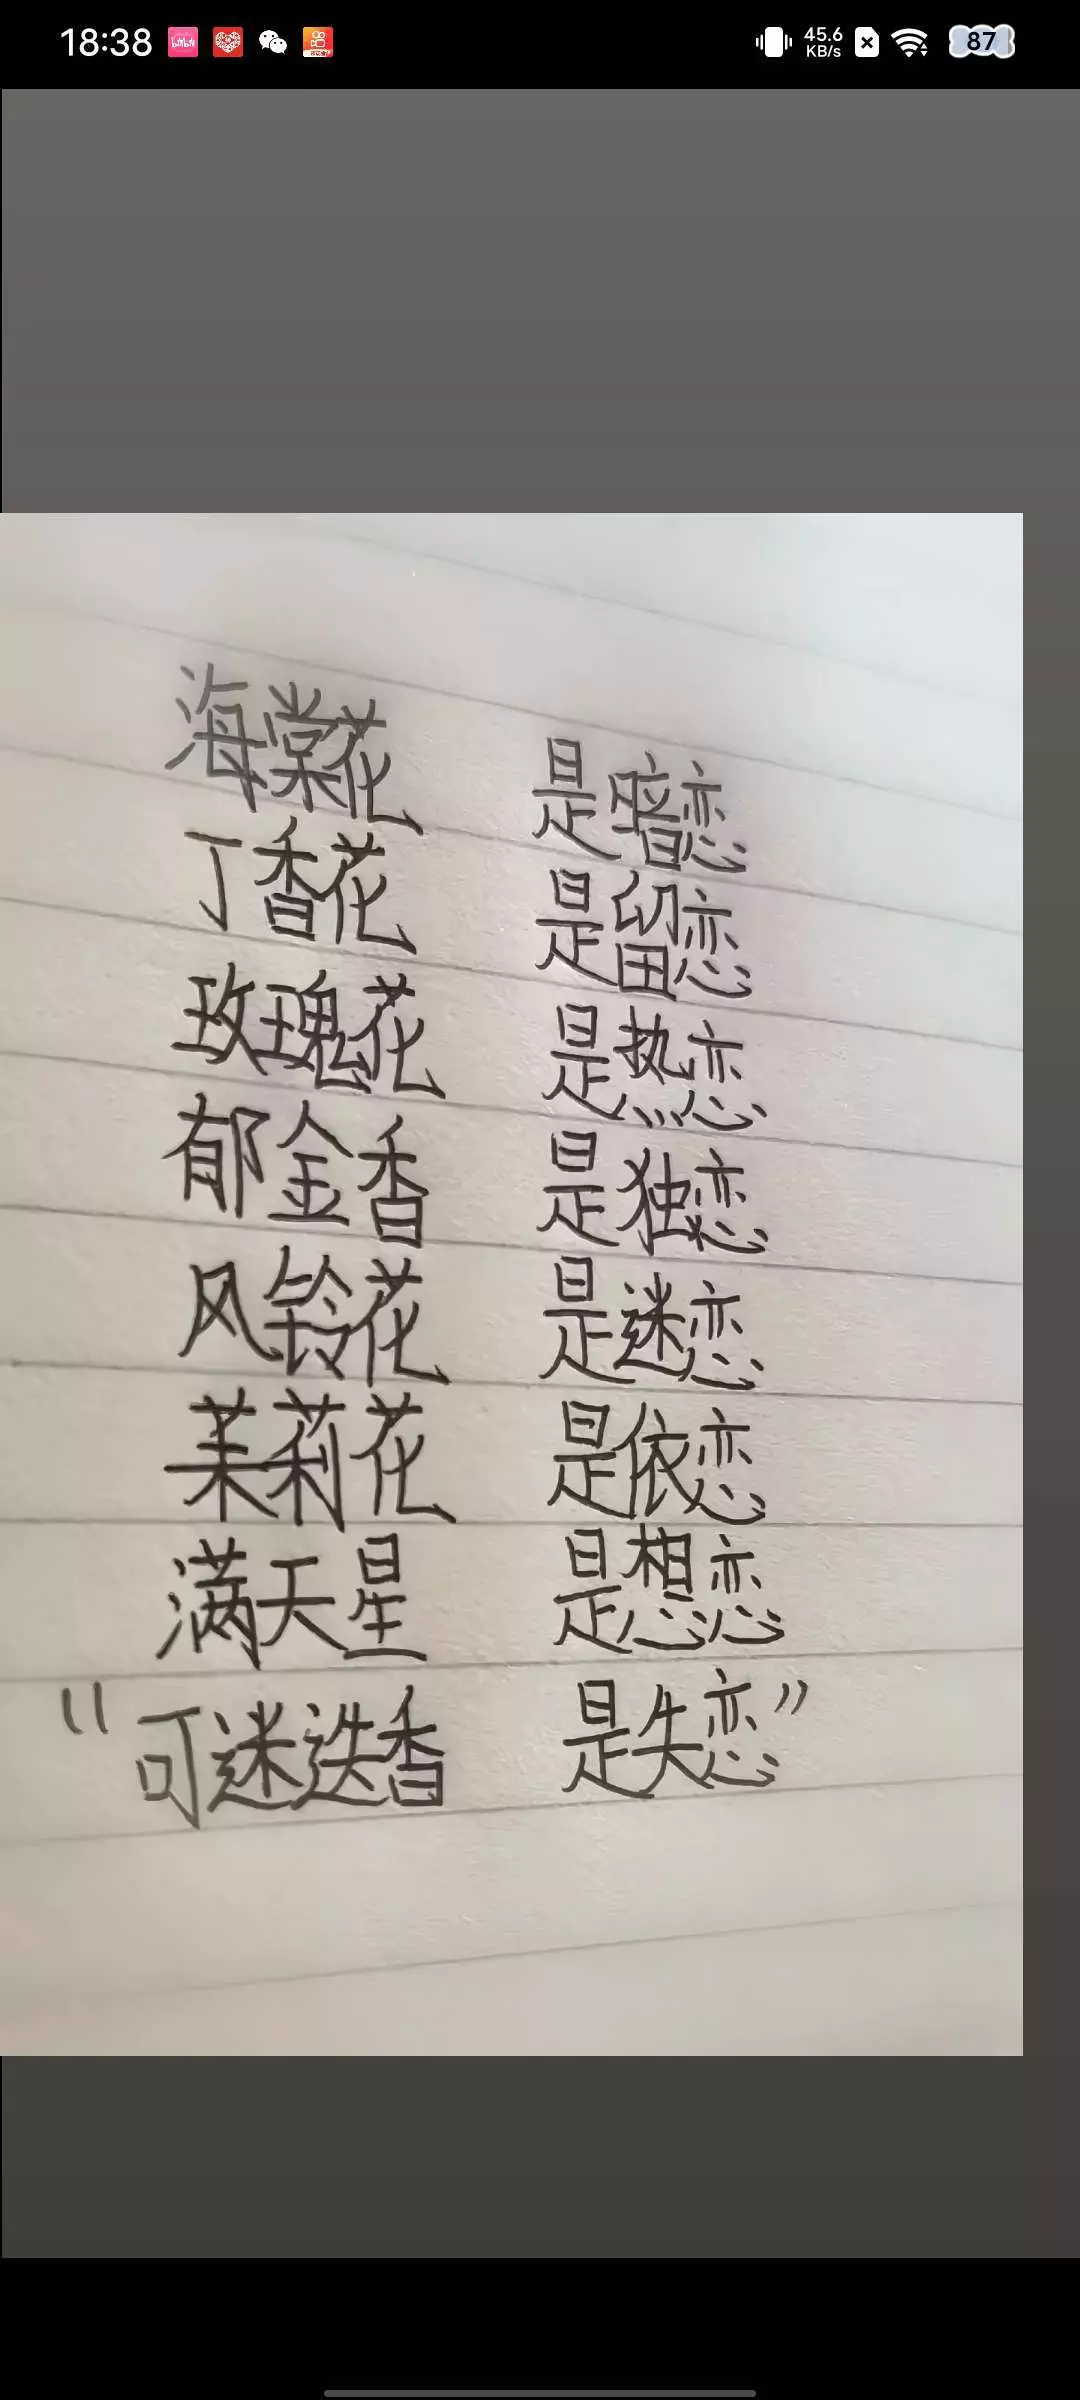 18:38 45.6 KB/s 87
海棠花 是暗恋
丁香花 是留恋
玫瑰花 是热恋
郁金香 是独恋
风铃花 是迷恋
茉莉花 是依恋
满天星 是想恋
"可迷迭香 是失恋"